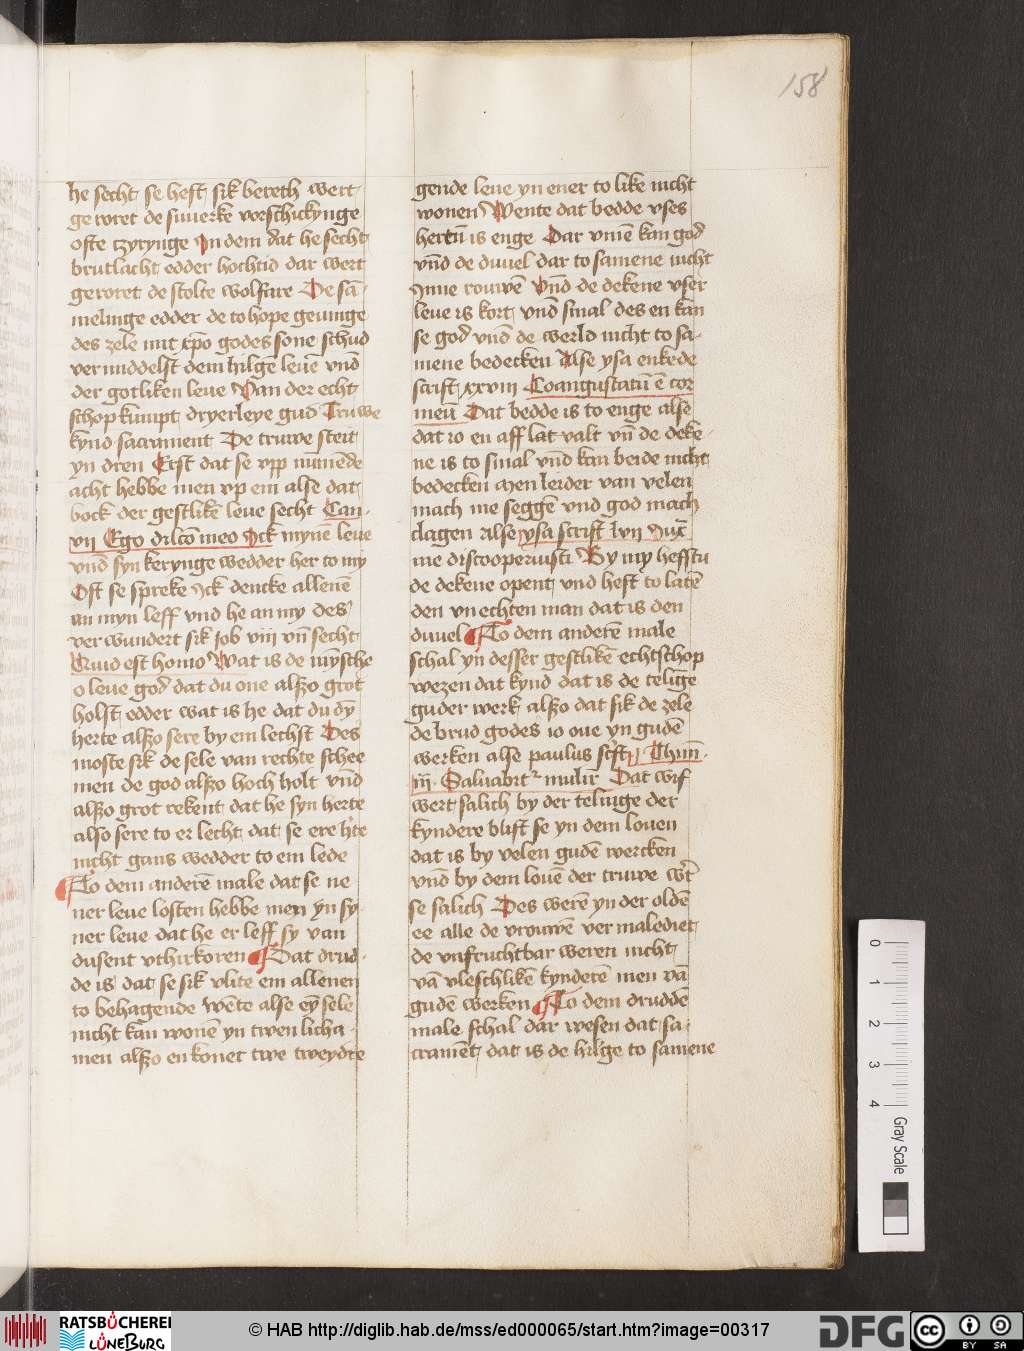 158
he secht se heft sik bereth wert
ge roret de sinierke vorschickynge
ofte tzyrynge In dem dat he secht
brutlacht edder hochtid dar wert
geroret de stolte wolfare De sā-
melinge edder de to hope gevinge
des zele mit xpo godes sone schud
ver middelst dem hilge leuē vnd
der gotliken leue Van der echt
schop kumpt dryerleye gud Truwe
kynd sacrament De truwe steit
yn dren Erst dat se vpp nūmēde
acht hebbe men vp em alse dat
bock der gestlikē leue secht Can
vij Ego dilcō meo Ick mynē leue
vnd syn kerynge wedder her to my
Oft se spreke Ick dencke allenē
an myn leff vnd he an my Des
ver wundert sik Job viij vn̄ secht
Quid est homo Wat is de mȳsche
o leue god dat du one alszo grot
holst edder wat is he dat du dy
herte alszo sere by em lechst Des
moste sik de sele van rechte schee
men de god alszo hoch holt vnd
alszo grot rekent dat he syn herte
also sere to er lecht dat se ere hte
nicht gans wedder to em lede
To dem anderē male dat se ne
ner leue losten hebbe men yn sy
ner leue dat he er leff sy van
dusent vthirkoren Dat drud-
de is dat se sik vlite em allenen
to behagende wēte alse eȳ sele
nicht kan wonē yn twen licha-
men alszo en konet twe tweydre
gende leue yn ener to like nicht
wonen Wente dat bedde vses
hertē is enge Dar vmē kan god
vnd de duuel dar to samene nicht
ynne rouwē Vnd de dekene vser
leue is kort vnd smal des en kan
se god vnd de werld nicht to sa-
mene bedecken Alse ysa enkede
scrift xxviij Coangustatū ē cor
meū Dat bedde is to enge alse
dat io en aff lat valt vn̄ de deke-
ne is to smal vnd kan beide nicht
bedecken Men leider van velen
mach me seggē vnd god mach
clagen alse ysa scrift lvij Iux
me discooperuisti By my hefstu
de dekene opent vnd hest to latē
den vnechten man dat is den
duuel To dem anderē male
schal yn desser gestlikē echtschop
wezen dat kynd dat is de telige
guder werk alszo dat sik de zele
de brud godes io oue yn gudē
werken alse paulus scft j Thim
iij Saluabitr mulir Dat wif
wert salich by der telinge der
kyndere blift se yn dem louen
dat is by velen gudē wercken
vnd by dem louē der truwe wt
se salich Des werē yn der oldē
ee alle de vrouwē ver malediet
de vnfruchtbar weren nicht
vā vleschlikē kynderē men vā
gudē werken To dem druddē
male schal dar wesen dat sa-
cramēt dat is de hilge to samene
0
1
2
3
4
Gray Scale
RATSBÜCHEREI
LÜNEBURG
© HAB http://diglib.hab.de/mss/ed000065/start.htm?image=00317
DFG
cc BY SA